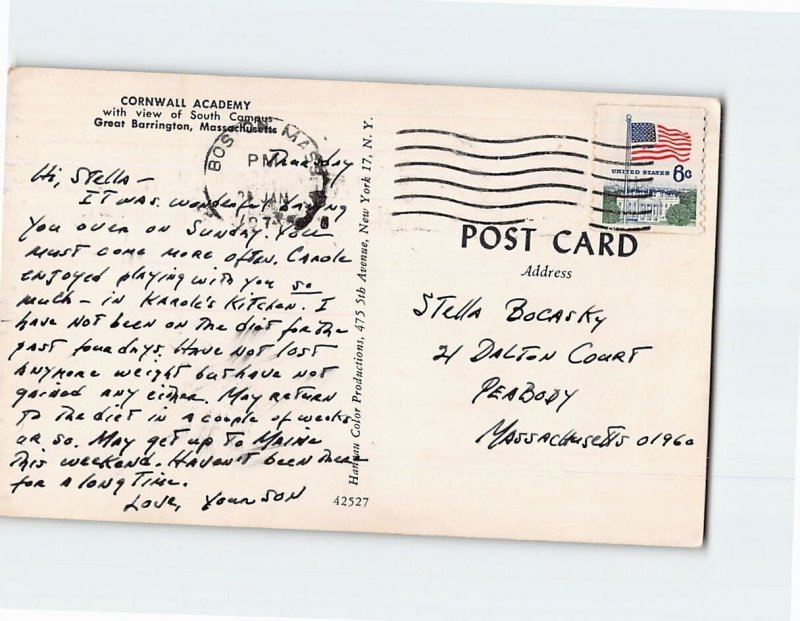 CORNWALL ACADEMY
with view of South Campus
Great Barrington, Massachusetts
BOSTON MASS
PM
JAN
Thursday
Hi, Stella –
IT was wonderful having
you over on Sunday. You
must come more often. Carole
enjoyed playing with you so
much – in Karole's Kitchen. I
have not been on the diet for the
past four days. Have not lost
anymore weight but have not
gained any either. May return
to the diet in a couple of weeks
or so. May get up to Maine
this weekend. Haven't been there
for a long time.
Love, Your SON
Hannau Color Productions, 475 5th Avenue, New York 17, N. Y.
42527
UNITED STATES 6c
POST CARD
Address
Stella Bocasky
21 Dalton Court
Peabody
Massachusetts 01960